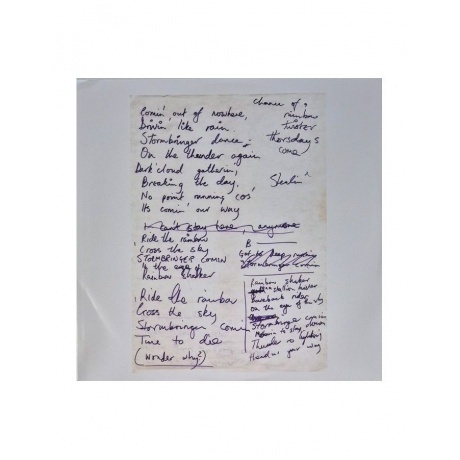 Comin' out of nowhere,
Drivin' like rain.
Stormbringer dance,
On the thunder again
Dark cloud gatherin,
Breaking the day,
No point running cos'
Its comin' our way
Chance of a
rainbow
twister
Thorsday's
come
Stealin'
I can't stay here, anymore
Ride the rainbow
Cross the sky
STORMBRINGER COMIN
In the eye
Rainbow Shaker
B
Got to keep
Ride the rainbow
Cross the sky
Stormbringer comin
Time to die
(Wonder why?)
Rainbow shaker
stallion
Bareback rider
on the eye of the sky
Stormbringer comin
to
Thunder
Headin' your way